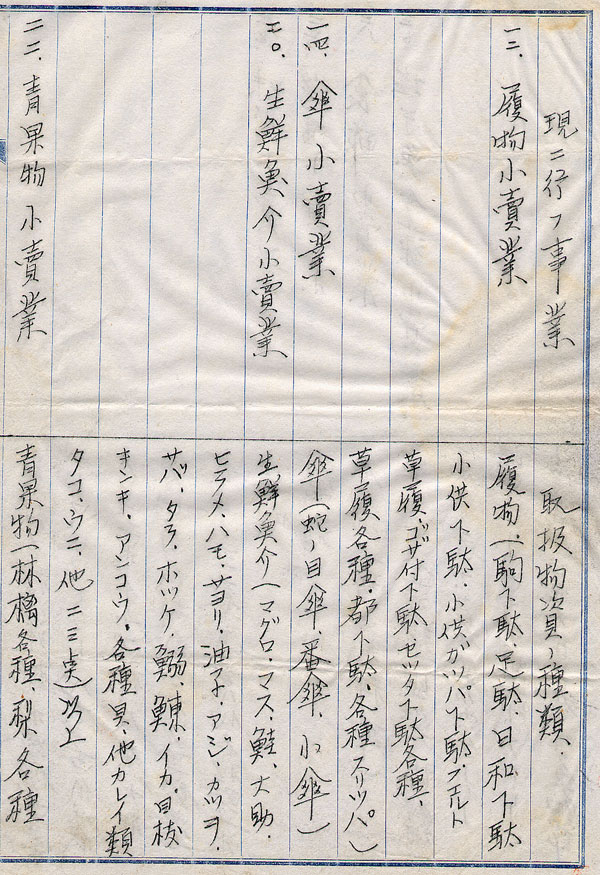 現ニ行フ事業
取扱物資ノ種類.
一三、履物小賣業
履物(駒下駄、足駄、日和下駄
小供下駄、小供ガツパ下駄、フエルト
草履、ゴザ付下駄、セツタ下駄各種、
草履各種、都下駄、各種スリツパ)
一四、傘小賣業
傘(蛇ノ目傘、番傘、小傘)
二〇、生鮮魚介小賣業
生鮮魚介(マグロ、マス、鮭、大助、
ヒラメ、ハモ、サヨリ、油子、アジ、カツヲ、
サバ、タラ、ホツケ、鰯、鰊、イカ、目抜
キンキ、アンコウ、各種貝、他カレイ類
タコ、ウニ、他二三点)以上
二二、青果物小賣業
青果物(林檎各種、梨各種